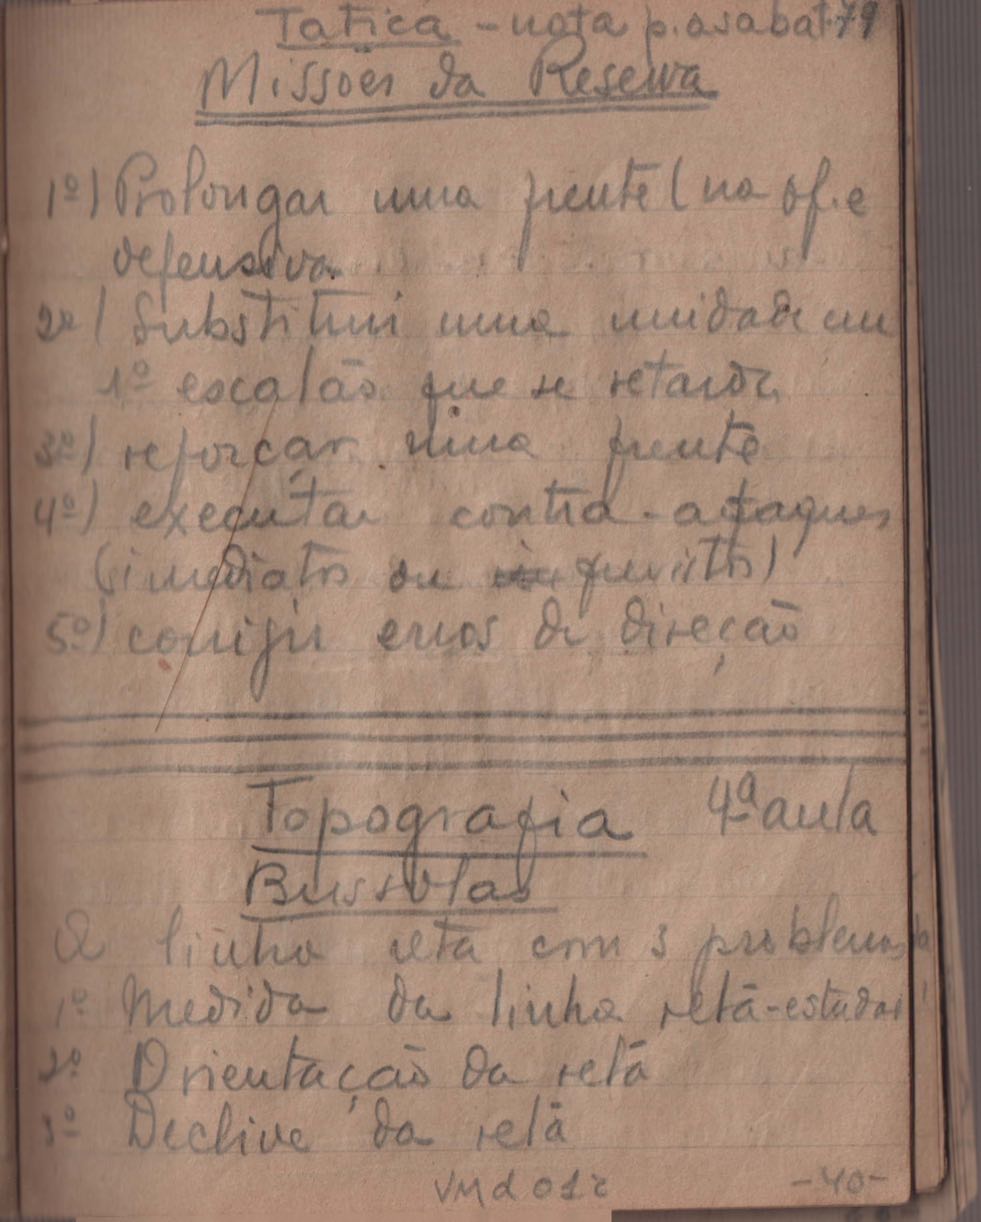 Tatica - nota p. a sabat. 79
Missões da Reserva
1º) Prolongar uma frente (na of. e
defensiva
2º) Substituir uma unidade em
1º escalão que se retarda
3º) reforçar uma frente
4º) executar contra-ataques
(imediatos ou previstos)
5º) corrigir erros de direção
Topografia 4ª aula
Bussolas
A linha reta com 3 problemas
1º Medida da linha reta-estudar
2º Orientação da reta
3º Declive da reta
VMd 012 -40-